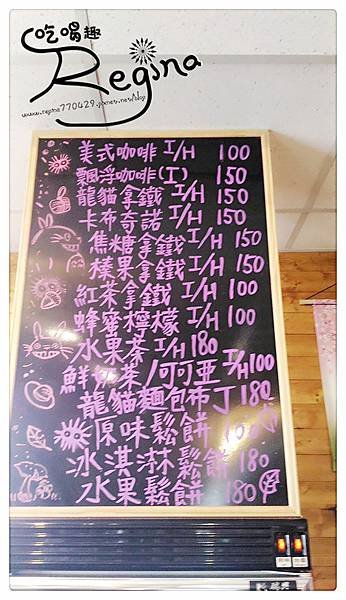 吃喝趣
Regina
www.regina770429.pixnet.net/blog
美式咖啡 I/H 100
飄浮咖啡(I) 150
龍貓拿鐵 I/H 150
卡布奇諾 I/H 150
焦糖拿鐵 I/H 150
榛果拿鐵 I/H 150
紅茶拿鐵 I/H 100
蜂蜜檸檬 I/H 100
水果茶 I/H 180
鮮奶茶/可可亞 I/H 100
龍貓麵包布丁 180
原味鬆餅
冰淇淋鬆餅 180
水果鬆餅 180